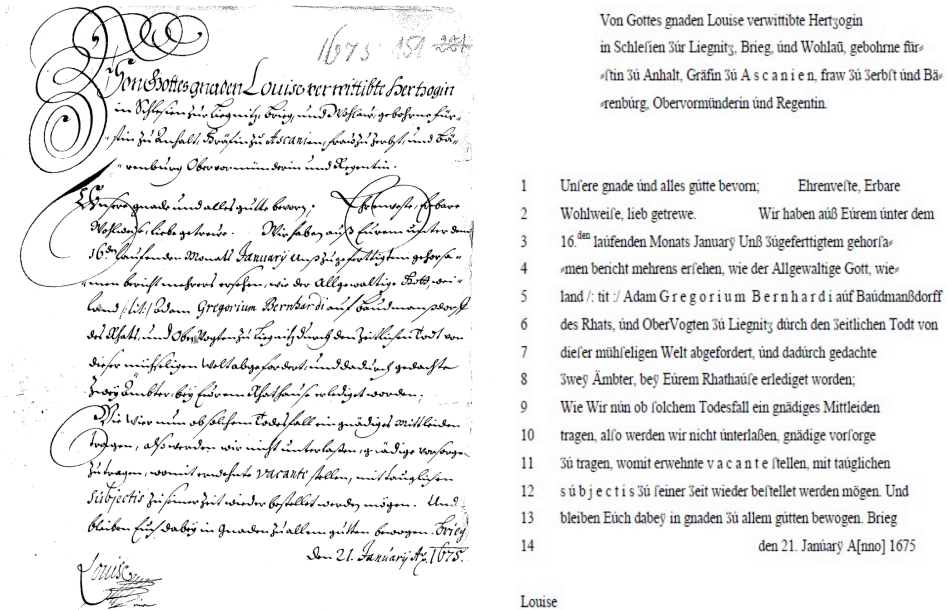 1675. 151 221
Von Gottes gnaden Louise verwittibte Hertzogin
in Schlesien zur Liegnitz, Brieg, und Wohlau, gebohrne für-
-stin zu Anhalt, Gräfin zu Ascanien, frau zu Zerbst, und Bä-
-renburg, Obervormünderin und Regentin.
Unsere gnade und alles gutte bevorn; Ehrenveste, Erbare
Wohlweise, liebe getreue. Wir haben auß Eurem unter dem
16.den laufenden Monats Januarÿ Unß zugeferttigtem gehorsa-
-men bericht mehrers ersehen, wie der Allgewaltige Gott, wei-
land /: tit :/ Adam Gregorium Bernhardi auf Baudmanßdorff
des Rhats, und OberVogten zu Liegnitz durch den Zeitlichen Todt von
dieser mühseligen Welt abgefordert, und dadurch gedachte
zweÿ Ämbter, beÿ Eurem Rhathause erlediget worden;
Wie Wir nun ob solchem Todesfall ein gnädiges Mittleiden
tragen, also werden wir nicht unterlaßen, gnädige vorsorge
zu tragen, womit erwehnte vacante stellen, mit tauglichen
subjectis zu seiner Zeit wieder bestellet werden mögen. Und
bleiben Euch dabeÿ in Gnaden zu allem gutten bewogen. Brieg
den 21. Januarÿ Ao. 1675.
Louise
Von Gottes gnaden Louise verwittibte Hertʒogin
in Schleſien Ʒúr Liegnitʒ, Brieg, únd Wohlaũ, gebohrne für⸗
⸗ſtin Ʒú Anhalt, Gräfin Ʒú A s c a n i e n, fraw Ʒú Ʒerbſt únd Bä⸗
⸗renbúrg, Obervormünderin únd Regentin.
1 Unſere gnade únd alles gútte bevorn; Ehrenveſte, Erbare
2 Wohlweiſe, lieb getrewe. Wir haben aúß Eúrem únter dem
3 16.den laúfenden Monats Januarÿ Unß Ʒúgeferttigtem gehorſa⸗
4 ⸗men bericht mehrens erſehen, wie der Allgewaltige Gott, wie⸗
5 land /: tit :/ Adam G r e g o r i u m B e r n h a r d i aúf Baúdmanßdorff
6 des Rhats, únd OberVogten Ʒú Liegnitʒ dúrch den Ʒeitlichen Todt von
7 dieſer mühſeligen Welt abgefordert, únd dadúrch gedachte
8 Ʒweÿ Ämbter, beÿ Eúrem Rhathaúſe erlediget worden;
9 Wie Wir nún ob ſolchem Todesfall ein gnädiges Mittleiden
10 tragen, alſo werden wir nicht únterlaßen, gnädige vorſorge
11 Ʒú tragen, womit erwehnte v a c a n t e ſtellen, mit taúglichen
12 s ú b j e c t i s Ʒú ſeiner Ʒeit wieder beſtellet werden mögen. Und
13 bleiben Eúch dabeÿ in gnaden Ʒú allem gútten bewogen. Brieg
14 den 21. Janúarÿ A[nno] 1675
Louise